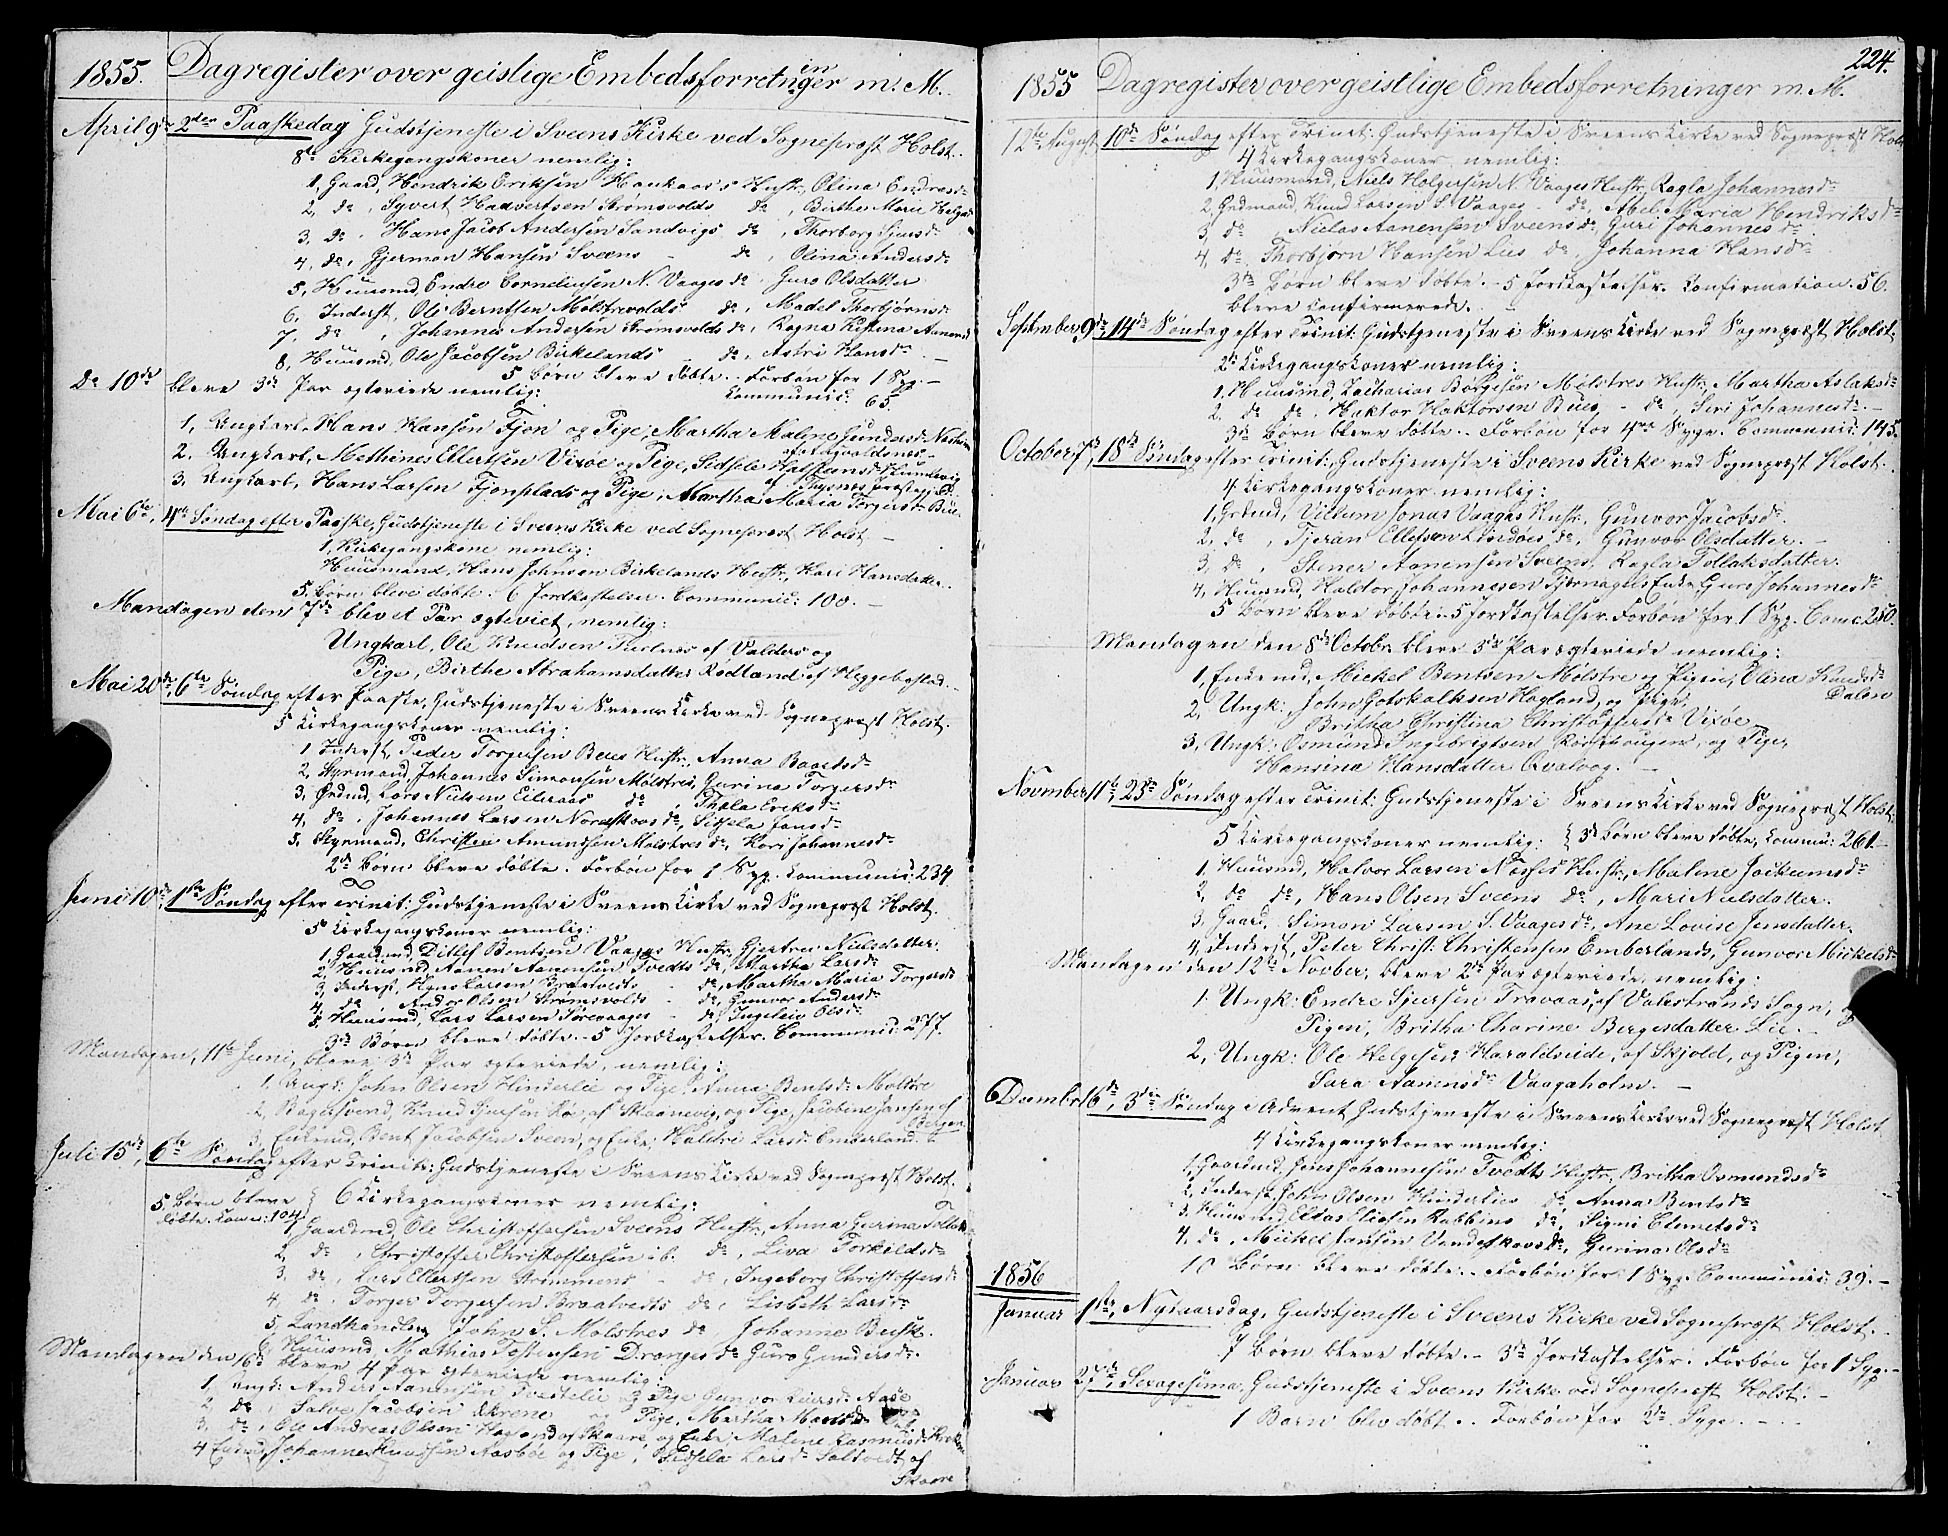 1855. Dagregister over geistlige Embedsforretninger m: M.
April 9de 2den Paaskedag Gudstjeneste i Sveens Kirke ved Sognepræst Holst.
8te Kirkegangskoner nemlig:
1, Gaard, Hendrik Eriksen Haukaas's Hustr, Olina Endresdr
2, do, Syvert Haavertsen Strømsvolds do, Birthe Marie Helgesdr
3, do, Hans Jacob Andersen Sandvigs do, Thorborg Sjursdr
4, do, Gjerman Hansen Sveens - do, Olina Andersdr
5, Huusmd, Endre Corneliusen N. Vaages do, Guro Olsdatter
6, Inderst, Ole Berntsen Mølstrevolds do, Madel Thorbjørnsdr
7, do, Johannes Andersen Strømsvolds do, Ragna Kistina Aanensdr
8, Huusmd, Ole Jacobsen Birkelands - do, Astri Hansdr -
5 Børn bleve døbte. Forbøn for 1 Syg. -
Do 10de bleve 3de Par ægteviede nemlig: Communic: 65.
1, Ungkarl, Hans Hansen Fjon og Pige, Martha Malene Gundersdr
af Augvaldsnes. -
2. Ungkarl, Methines Ellertsen Vixøe og Pige, Sidsele Halsteinsdr
af Thysnes Præstegjeld.
3. Ungkarl, Hans Larsen Fjonsplads og Pige, Martha Maria Torgersdr Bue.
Mai 6te, 4de Søndag efter Paaske, Gudstjeneste i Sveens Kirke ved Sognepræst Holst. -
1, Kirkegangskone nemlig:
Huusmand, Hans Johnsen Birkelands Hustr, Kari Hansdatter.
5. Børn bleve døbte. 6 Jordkastelser. Communic: 100. -
Mandagen den 7de blev et Par ægteviet, nemlig:
Ungkarl, Ole Knudsen af Valders og
Pige, Birthe Abrahamsdatter Rødland af Heggebostad. -
Mai 20de, 6te Søndag efter Paaske, Gudstjeneste i Sveens Kirke ved Sognepræst Holst.
5 Kirkegangskoner nemlig:
1, Inderst, Peder Torgersen Bues Hustr, Anna Baardsdr
2, Styrmand, Johannes Simonsen Mølstres, Gurina Torgersdr
3, Grdmd, Lars Nielsen Eileraas do, Thala Eriksdr
4, do, Johannes Larsen Nordskovs do, Sidsela Jansdr
5, Styrmand, Christen Amundsen Mølstres do, Kari Johannesdr
2de Børn bleve døbte. Forbøn for 1 Syg. Communic: 234
Juni 10de, 1ste Søndag efter Trinit: Gudstjeneste i Sveens Kirke ved Sognepræst Holst.
5 Kirkegangskoner nemlig:
1, Gaardmd, Ditlef Bentsen Vaages Hustr, Gjertru Nielsdatter.
2, Huusmd, Aanen Aanensen Tvedts do, Martha Larsdr
3, Inderst, Hans Larsen Braatvedts - do, Martha Maria Torgersdr
4, do Andor Olsen Strømsvolds - do, Gunvor Andersdr
5, Huusmd, Lars Larsen Sørevaages - do, Ingeleiv Olsdr
3de Børn bleve døbte. - 5 Jordkastelser. Communic: 277.
Mandagen, 11te Juni, bleve 3de Par ægteviede, nemlig:
1, Ungk: John Olsen Hinderlie og Pige, Anna Bentsdr Mølstre
2, Bagersvend, Knud Sjursen af Skaanevig, og Pige, Jacobine Jansen af
Bergen
3, Enkemd, Bent Jacobsen Sveen, og Enke, Haldri Larsdr Emberland.
Juli 15de, 6te Søndag efter Trinit: Gudstjeneste i Sveens Kirke ved Sognepræst Holst.
5. Børn bleve 6 Kirkegangskoner nemlig:
døbte. Comm: 104.
1, Gaardmd, Ole Christoffersen Sveens Hustr, Anna Gurina
2, do, Christoffer Christoffersen ib. do, Liva Torkildsdr
3, do, Lars Ellertsen - do, Ingeborg Christoffersdr
4, do, Torger Torgersen Braatvedts do, Lisbeth Larsdr
5, Landhandler, John S. Mølstres do, Johanne Busk.
6, Huusmd, Mathias Tostensen Dranges do Guro Gundersdr.
Mandagen den 16de bleve 4 Par ægteviede nemlig:
1, Ungk: Anders Aanensen Tvedtelie og Pige Gunvor
2, do, Salve Jacobsen og Pige, Martha
3, do, Ole Andreas Olsen Hagland af Skaare og Enke Malene Rasmusdr
4 Enkmd, Johannes Knudsen Aasbøe og Pige, Sidsela Larsdr Saltvedt af
Skaare
224.
1855 Dagregister over geistlige Embedsforretninger m. M.
12te August, 10de Søndag efter Trinit: Gudstjeneste i Sveens Kirke ved Sognepræst Holst
4 Kirkegangskoner nemlig:
1, Huusmand, Niels Holgersen N. Vaages Hustr, Ragla Johannesdr
2, Grdmand, Knud Larsen S. Vaages - do, Abel Maria Hendriksdr
3, do, Nielas Aanensen Sveens do, Guri Johannesdr.
4, do, Thorbjørn Hansen Lies do, Johanna Hansdr
3de Børn bleve døbte. - 5 Jordkastelser. Confirmation. 56.
bleve confirmerede. -
September 9de, 14de Søndag efter Trinit: Gudstjeneste i Sveens Kirke ved Sognepræst Holst.
2de Kirkegangskoner nemlig:
1, Huusmd, Zacharias Børgesen Mølstres Hustr, Martha Aslaksdr
2, do do, Haktor Haktorsen Bues - do, Siri Johannesdr. -
3de Børn bleve døbte. - Forbøn for 4re Syge. Communic: 145.
October 7de, 18de Søndag efter Trinit: Gudstjeneste i Sveens Kirke ved Sognepræst Holst.
4 Kirkegangskoner nemlig:
1, Grdmd, Villum Jonas Vaages Hustr, Gunvor Jacobsdr.
2, do, Tjeran Ellefsen Lindøes do, Gunvor Olsdatter. -
3, do, Stener Aanensen Sveens, Ragla Tollaksdatter.
4, Huusmd, Haldor Johannesen Tjernagels Enke, Guri Johannesdr
5 Børn bleve døbte. - 5 Jordkastelser. Forbøn for 1 Syg. Comc. 250.
Mandagen den 8de Octobr. bleve 3de Par ægteviede nemlig:
1, Enkemd, Mickel Bentsen Mølstre og Pigen, Olina Knudsdr
Dalen
2, Ungk:, John Gotskalksen Hagland, og Pige,
Britha Christina Christophersdr Vixøe
3, Ungk:, Osmund Ingebrigtsen, og Pige,
Hansina Hansdatter Qvalvog. -
Novmber 11te, 23de Søndag efter Trinit: Gudstjeneste i Sveens Kirke ved Sognepræst Holst.
5 Kirkegangskoner nemlig: 3de Børn bleve døbte, Commun: 261.
1, Huusmd, Halvor Larsen Næsses Hustr, Malene Jockumsdr
2, do do, Hans Olsen Sveens do, Mari Nielsdatter.
3, Gaard, Simon Larsen S. Vaages do, Ane Lovise Jensdatter.
4, Inderst, Peter Christ: Christensen Emberlands, Gunvor Mickelsdr
Mandagen den 12te Novber, bleve 2de Par ægteviede, nemlig:
1. Ungk: Endre Sjursen Travaas, af Valestrands Sogn, og
Pigen, Britha Charine Bergesdatter Lie. -
2, Ungk: Ole Helgesen Haraldseide, af Skjold, og Pigen,
Sara Aanensdr Vaagaholm. -
Decmber 16de, 3die Søndag i Advent Gudstjeneste i Sveens Kirke ved Sognepræst Holst
4 Kirkegangskoner nemlig:
1, Gaardmd, Jens Johannesen Tvedts Hustr, Britha Osmundsdr
2, Inderst, John Olsen Hinderlies do Anna Bentsdr
3, Huusmd, Elias Eliesen do, Signi Clemetsdr
4, do, Mickel Jansen do, Gurina Olsdr
10 Børn bleve døbte. - Forbøn for 1 Syg. Communic: 39. -
1856
Januar 1ste, Nytaarsdag, Gudstjeneste i Sveens Kirke ved Sognepræst Holst. -
7 Børn bleve døbte. - 3de Jordkastelser. Forbøn for 1 Syg. -
Januar 27de, Sexagesima, Gudstjeneste i Sveens Kirke ved Sognepræst Holst. -
1 Barn blev døbt. - Forbøn for 2de Syge. -